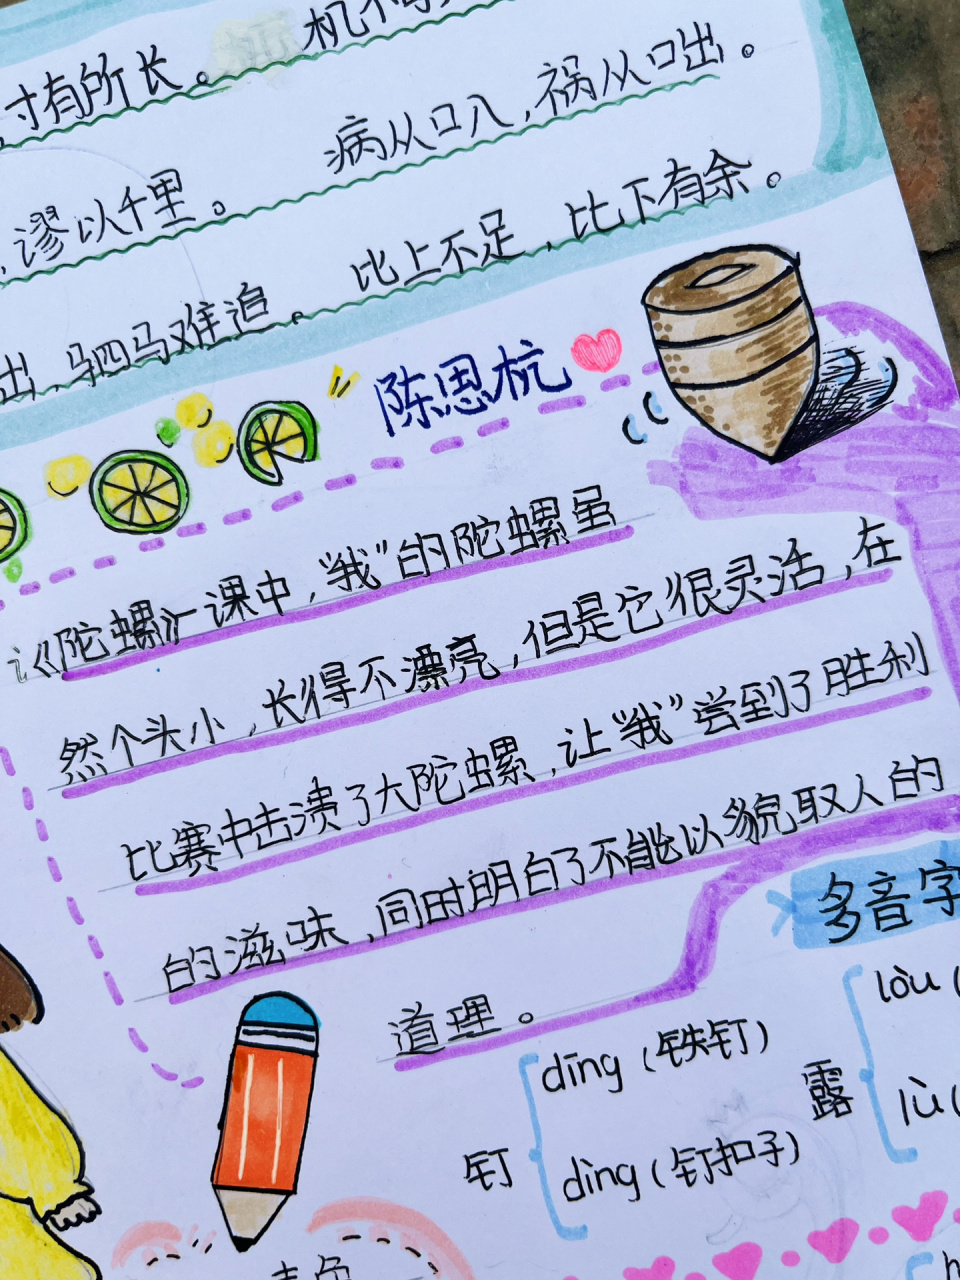 寸有所长。
病从口入，祸从口出。
，谬以千里。
比上不足，比下有余。
出，驷马难追。
陈思杭
《陀螺》一课中，“我”的陀螺虽
然个头小，长得不漂亮，但是它很灵活，在
比赛中击溃了大陀螺，让“我”尝到了胜利
的滋味，同时明白了不能以貌取人的
道理。
多音字
钉
dīng（铁钉）
dìng（钉扣子）
露
lòu（
lù（